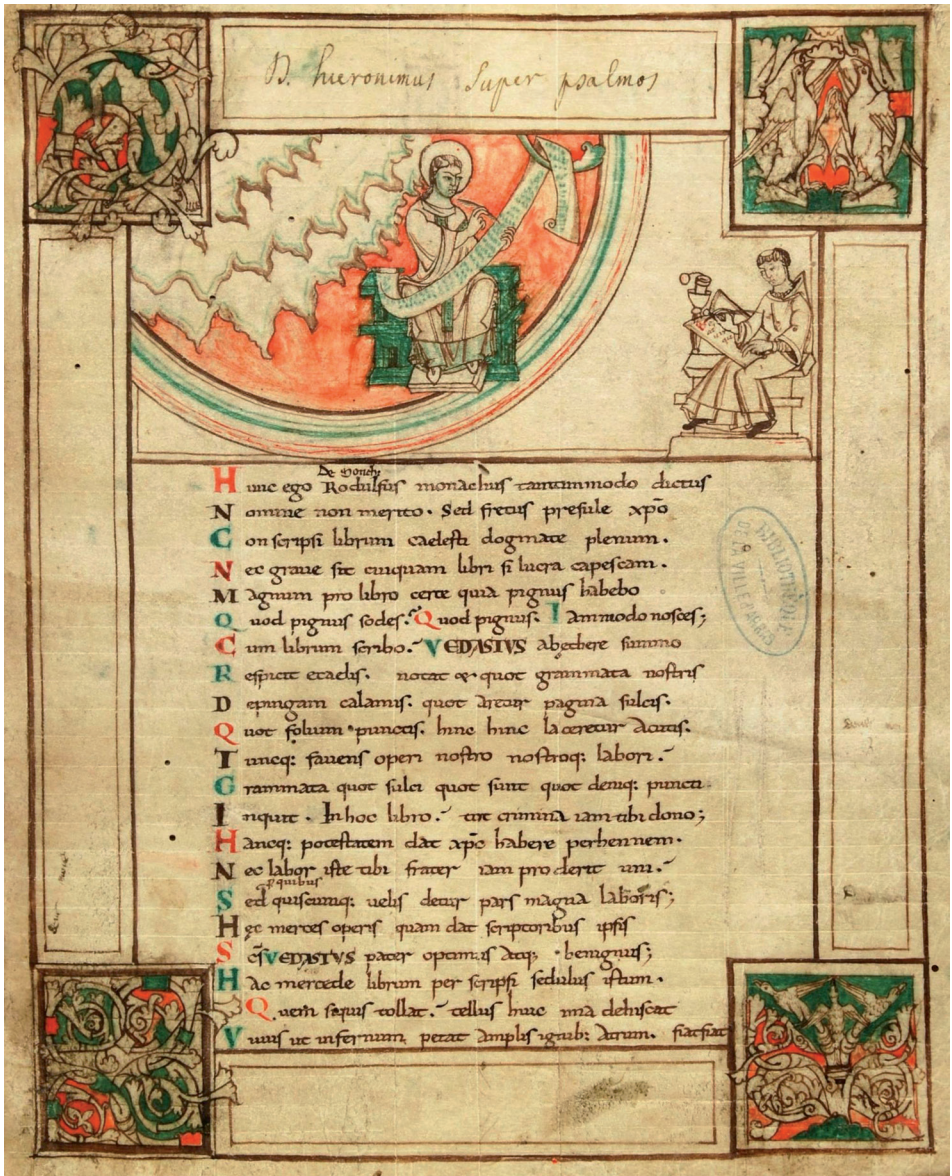 D. hieronimus super psalmos
Hunc ego Rodulfus monachus tantummodo dictus
Nomine non merito. Sed fretus presule xpo
Conscripsi librum caelesti dogmate plenum.
Nec graue sit cuiquam libri si lucra capescam.
Magnum pro libro certe quia pignus habebo
Quod pignus sodes. Quod pignus. Iam modo nosces;
Cum librum scribo. VEDASTVS ab ethere summo
Respicit e caelis. notat & quot grammata nostris
Depingam calamis. quot aretur pagina sulcis.
Quot folium punctis. hinc hinc laceretur acutis.
Tuncq: fauens operi nostro nostroq: labori.
Grammata quot sulci quot sunt quot deniq: puncti
Inquit. In hoc libro. tot crimina iam tibi dono;
Hancq: potestatem dat xpc habere perhennem.
Nec labor iste tibi frater iam proderit uni.
Sed quiscumq: uelis detur pars magna laboris;
p quibus
Hec merces operis quam dat scriptoribus ipsis
Scs VEDASTVS pater optimus atq: benignus;
Hac mercede librum perscripsi sedulus istum.
Quem siquis tollat. tellus huic ima dehiscat
Viuus ut infernum petat amplis ignib: atrum. fiat fiat
BIBLIOTHEQUE
DE LA VILLE D'ARRAS